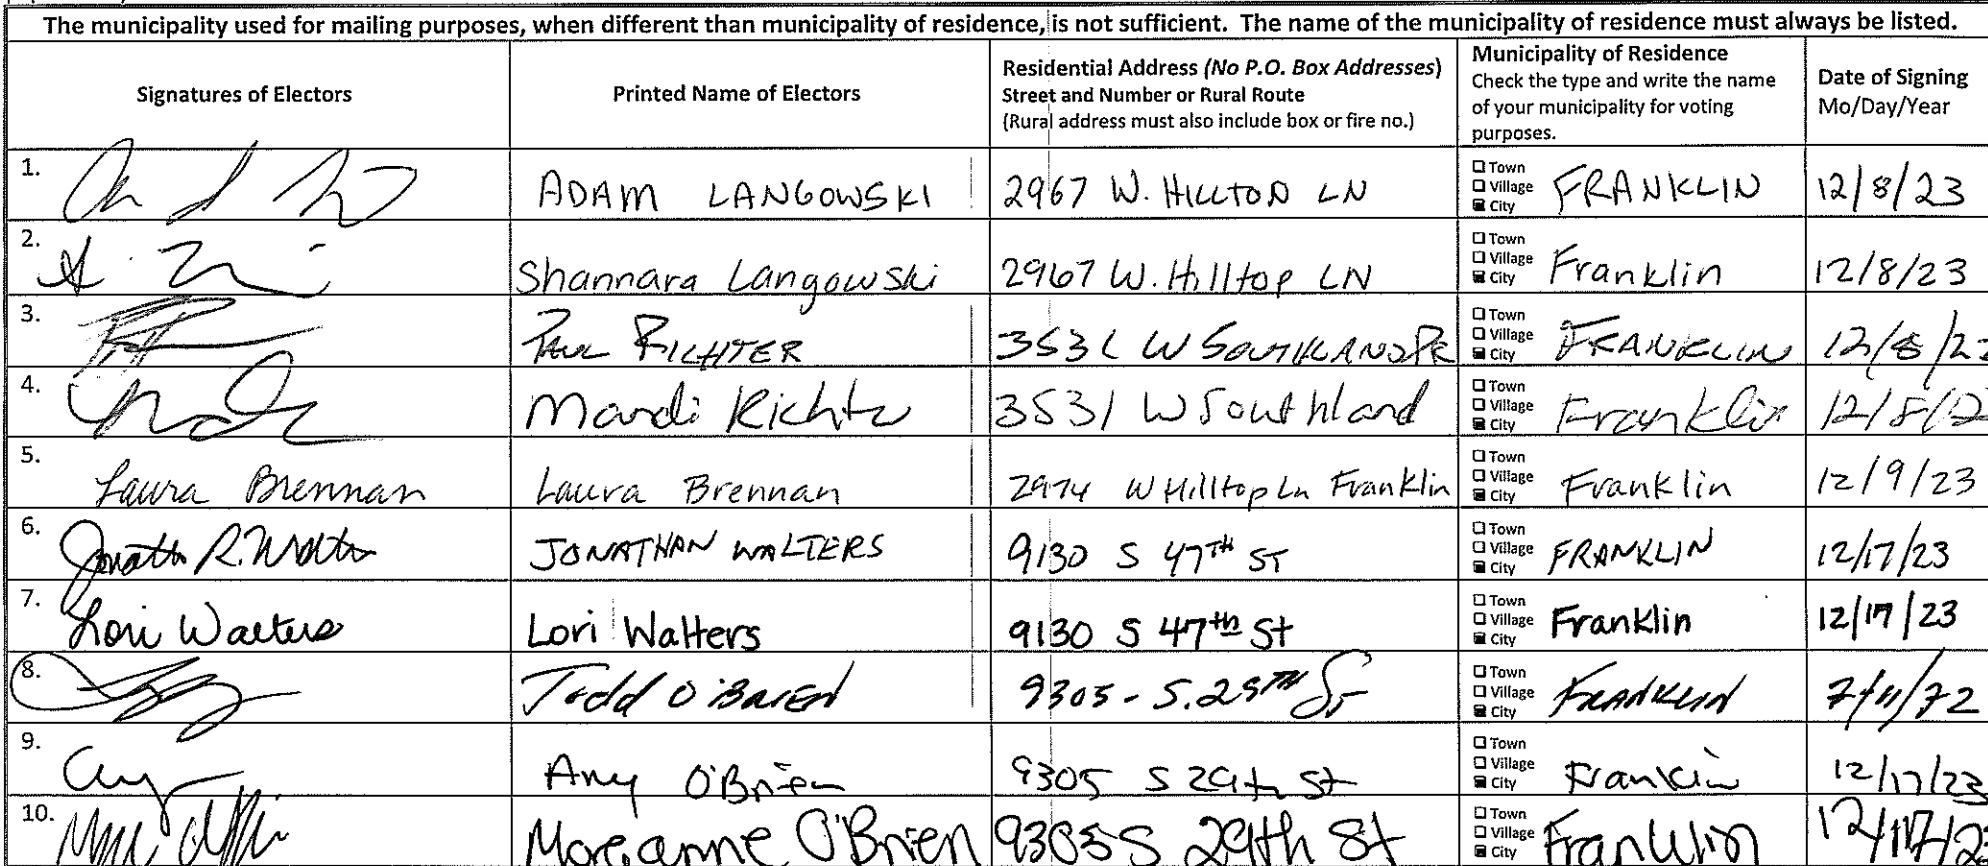 The municipality used for mailing purposes, when different than municipality of residence, is not sufficient. The name of the municipality of residence must always be listed.
Signatures of Electors
Printed Name of Electors
Residential Address (No P.O. Box Addresses)
Street and Number or Rural Route
(Rural address must also include box or fire no.)
Municipality of Residence
Check the type and write the name
of your municipality for voting
purposes.
Date of Signing
Mo/Day/Year
1. ADAM LANGOWSKI 2967 W. HILLTOP LN Town Village City FRANKLIN 12/8/23
2. Shannara Langowski 2967 W. Hilltop LN Town Village City Franklin 12/8/23
3. PAUL RICHTER 3531 W SOUTHLAND DR Town Village City FRANKLIN 12/8/2
4. Mardi Richte 3531 W Southland Town Village City Franklin 12/8/2
5. Laura Brennan Laura Brennan 2974 W Hilltop Ln Franklin Town Village City Franklin 12/9/23
6. Jonath R. Walte JONATHAN WALTERS 9130 S 47TH ST Town Village City FRANKLIN 12/17/23
7. Lori Walters Lori Walters 9130 S 47th St Town Village City Franklin 12/17/23
8. Todd O'BRIEN 9305 - S. 29TH ST Town Village City FRANKLIN 7/11/72
9. Amy O'Brien 9305 S 29th St Town Village City Franklin 12/17/23
10. Moreanne O'Brien 9305 S 29th St Town Village City Franklin 12/17/2